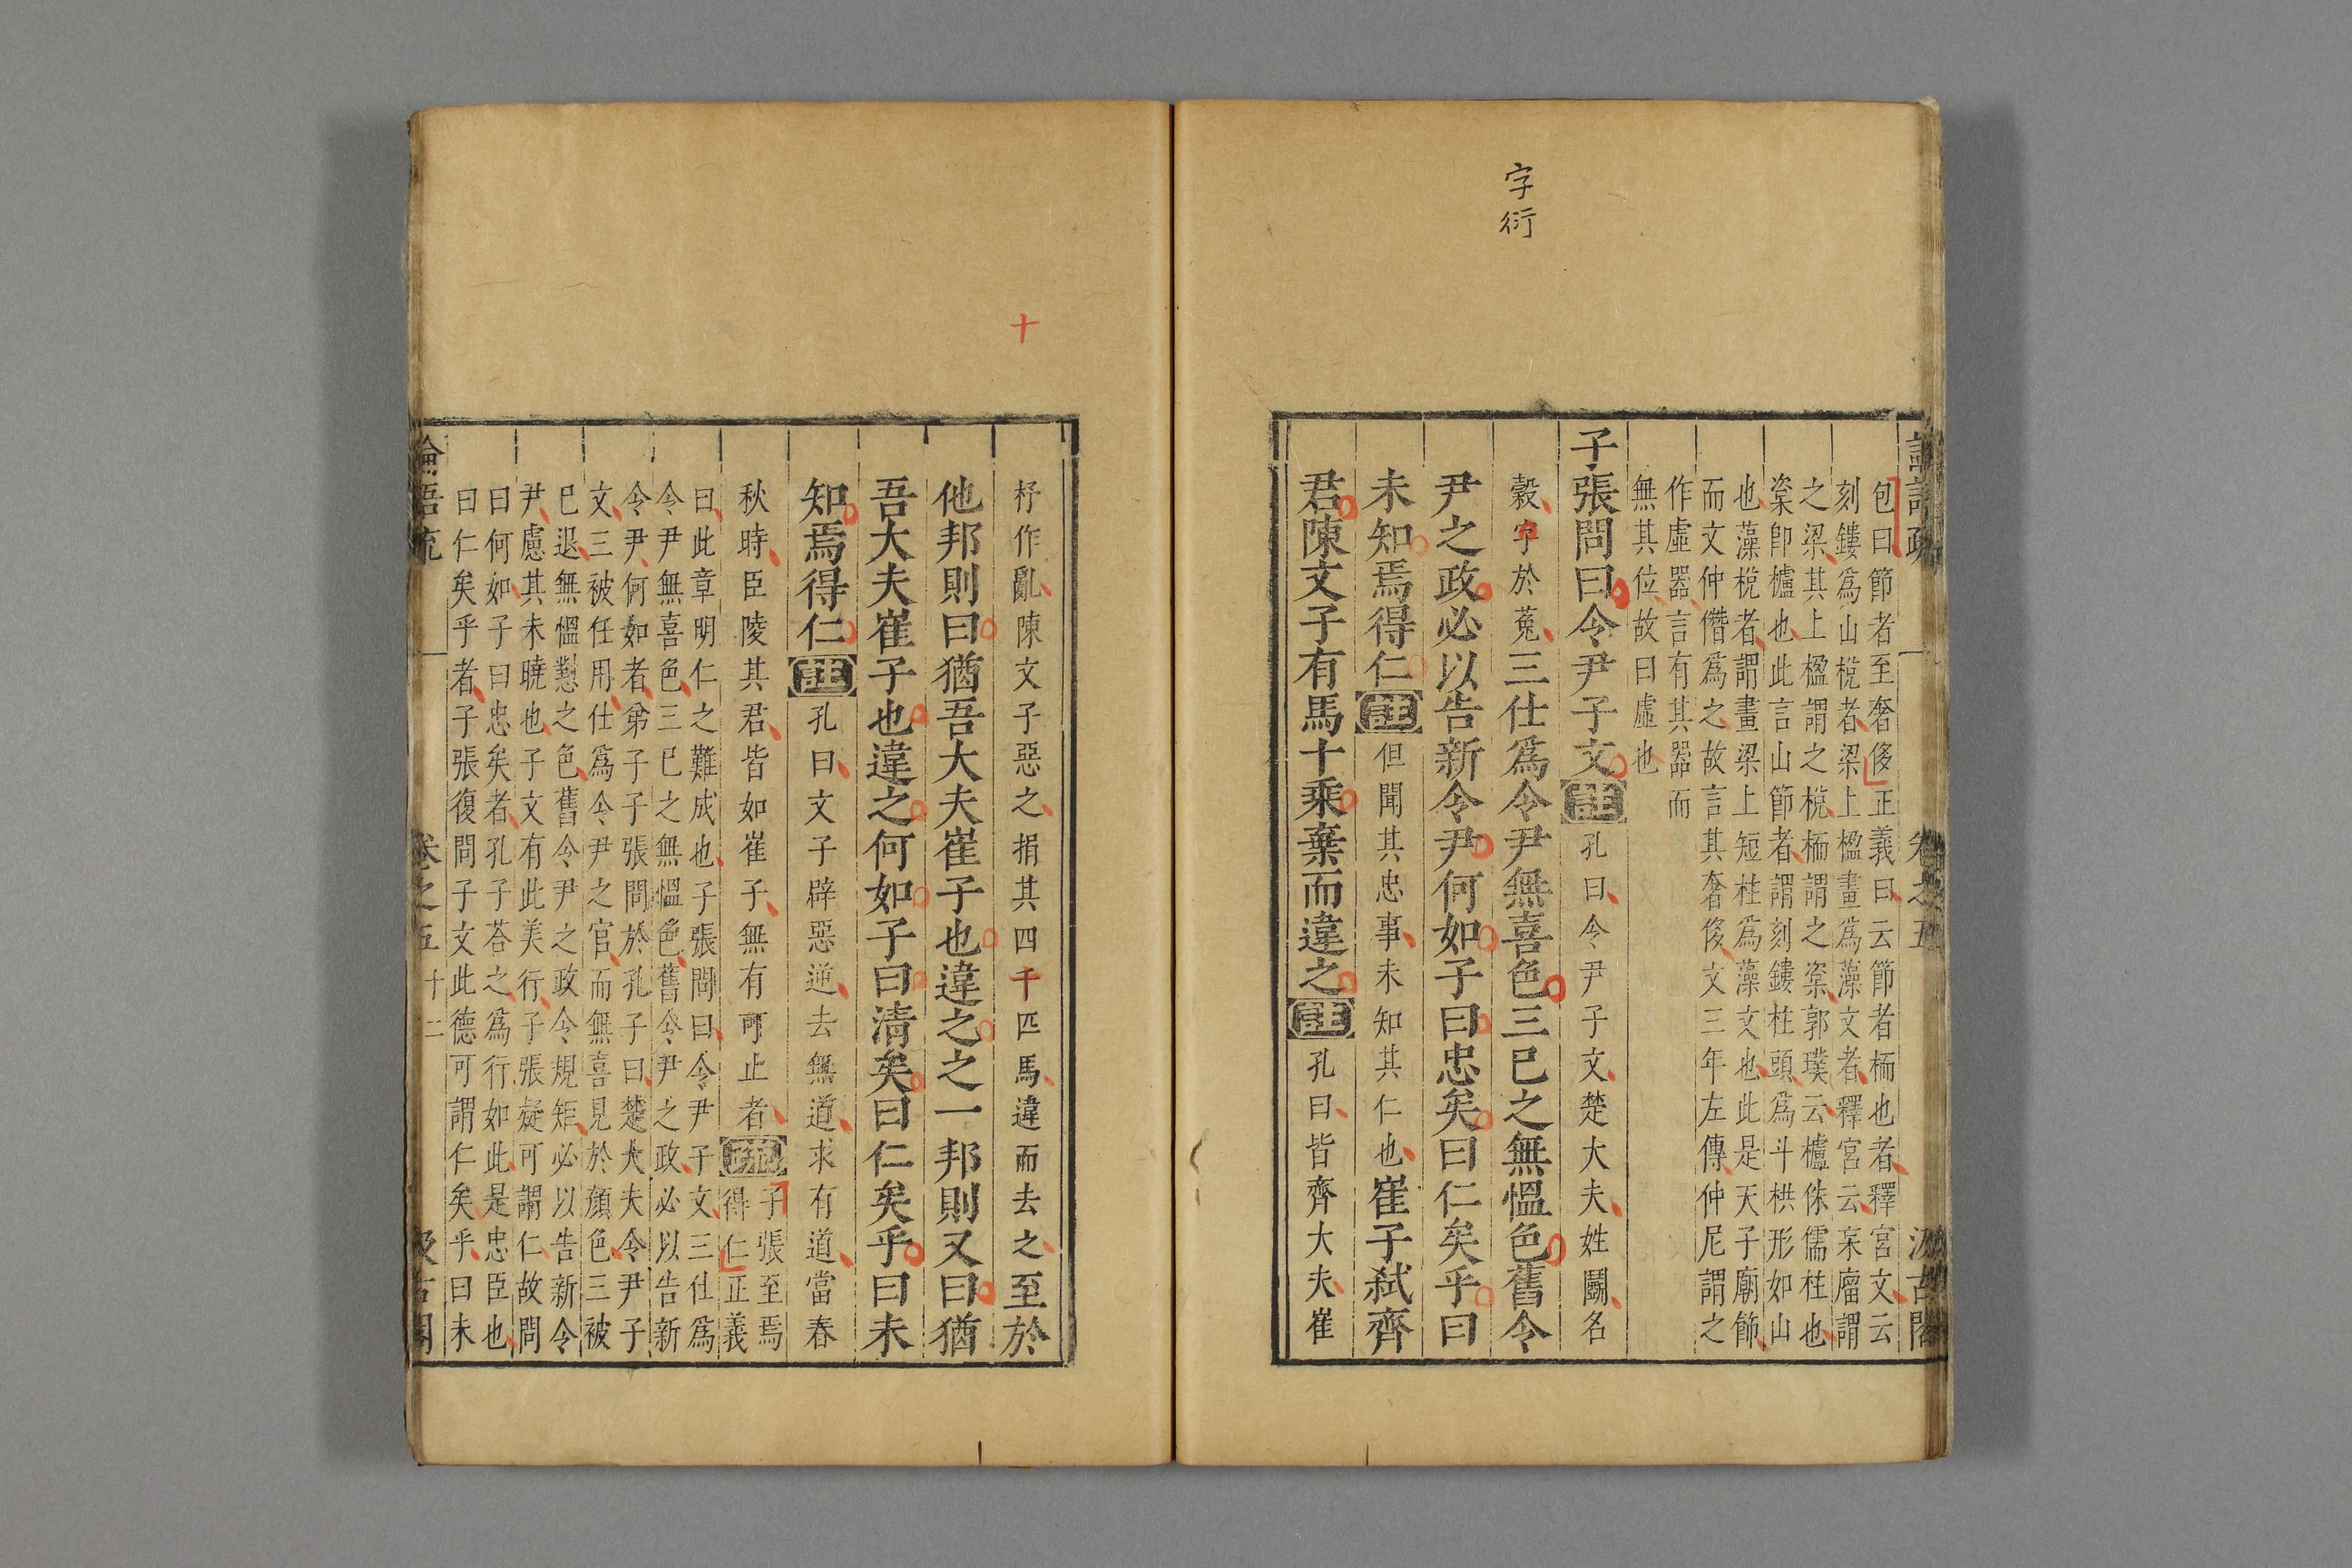 字衍
論語疏 卷之五 汲古閣
包曰節者至奢侈正義曰云節者栭也者釋宮文云
刻鏤爲山梲者梁上楹畫爲藻文者釋宮云杗廇謂
之梁其上楹謂之梲栭謂之楶郭璞云櫨侏儒柱也
楶卽櫨也此言山節者謂刻鏤柱頭爲斗栱形如山
也藻梲者謂畫梁上短柱爲藻文也此是天子廟飾
而文仲僭爲之故言其奢侈文三年左傳仲尼謂之
作虛器言有其器而
無其位故曰虛也
子張問曰令尹子文註孔曰令尹子文楚大夫姓鬬名
穀字於菟三仕爲令尹無喜色三已之無慍色舊令
尹之政必以告新令尹何如子曰忠矣曰仁矣乎曰
未知焉得仁註但聞其忠事未知其仁也崔子弑齊
君陳文子有馬十乘棄而違之註孔曰皆齊大夫崔
十
杼作亂陳文子惡之捐其四千匹馬違而去之至於
他邦則曰猶吾大夫崔子也違之之一邦則又曰猶
吾大夫崔子也違之何如子曰清矣曰仁矣乎曰未
知焉得仁註孔曰文子辟惡逆去無道求有道當春
秋時臣陵其君皆如崔子無有可止者疏子張至焉
得仁正義
曰此章明仁之難成也子張問曰令尹子文三仕爲
令尹無喜色三已之無慍色舊令尹之政必以告新
令尹何如者弟子子張問於孔子曰楚大夫令尹子
文三被任用仕爲令尹之官而無喜見於顏色三被
已退無慍懟之色舊令尹之政令規矩必以告新令
尹慮其未曉也子文有此美行子張疑可謂仁故問
曰何如子曰忠矣者孔子荅之爲行如此是忠臣也
曰仁矣乎者子張復問子文此德可謂仁矣乎曰未
論語疏 卷之五 十二 汲古閣